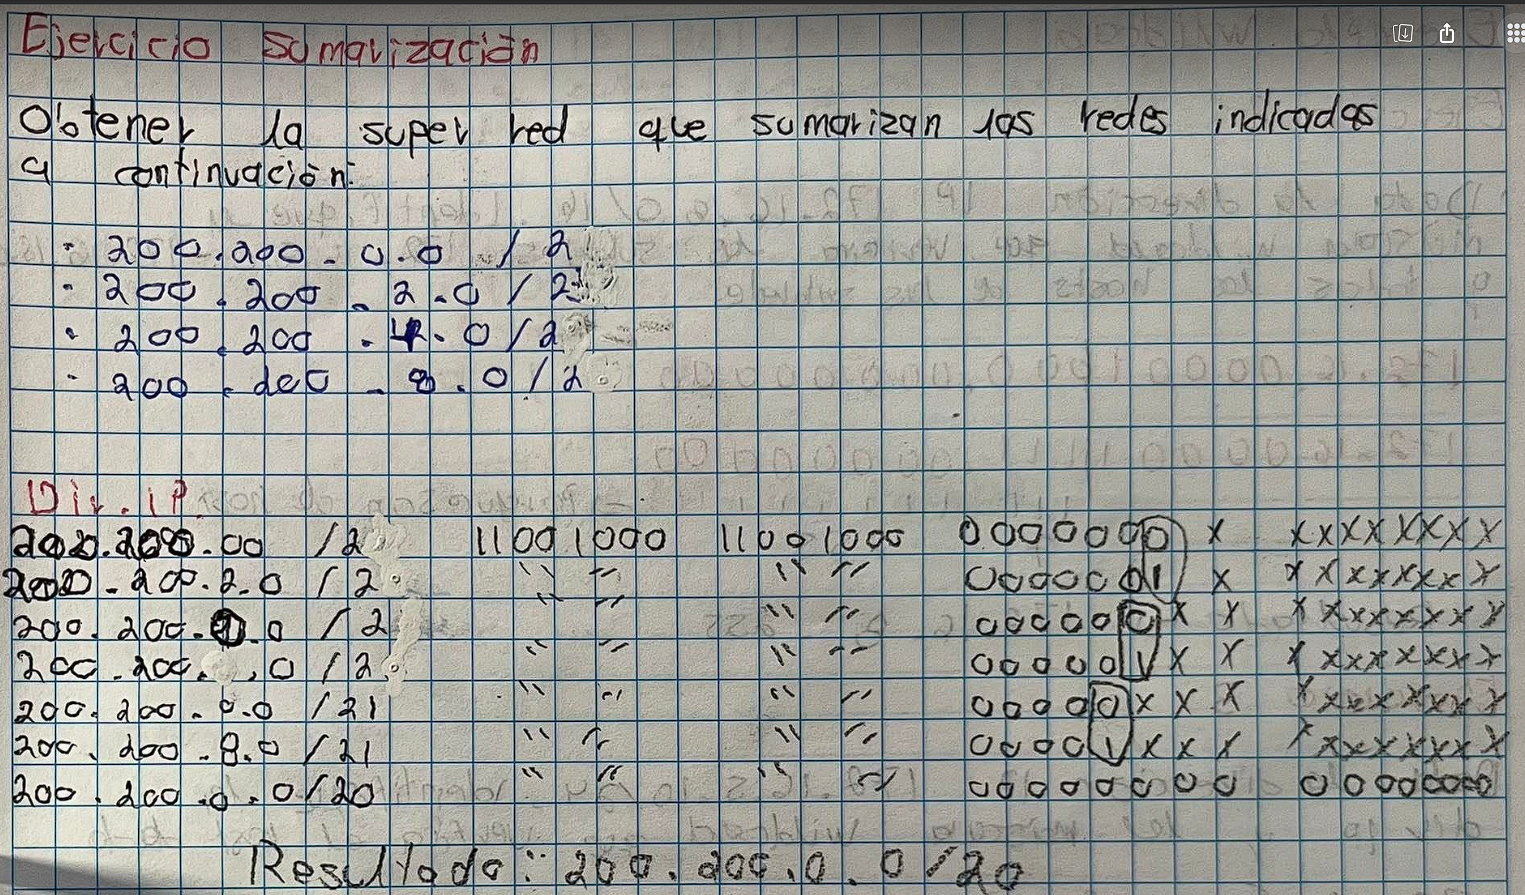 Ejercicio Sumarización
Obtener la super red que sumarizan las redes indicadas
a continuación:
· 200.200.0.0 / 2
· 200.200.2.0 / 2
· 200.200.4.0 / 2
· 200.200.8.0 / 2
Dir. IP
200.200.00 / 2 11001000 11001000 0000000 x xxxxxxxx
200.200.2.0 / 2 " " " " 0000001 x xxxxxxxx
200.200.0.0 / 2 " " " " 000000 x x xxxxxxxx
200.200. .0 / 2 " " " " 000001 x x xxxxxxxx
200.200.0.0 / 21 " " " " 00000 x x x xxxxxxxx
200.200.8.0 / 21 " " " " 00001 x x x xxxxxxxx
200.200.0.0/20 " " " " 00000000 00000000
Resultado: 200.200.0.0/20